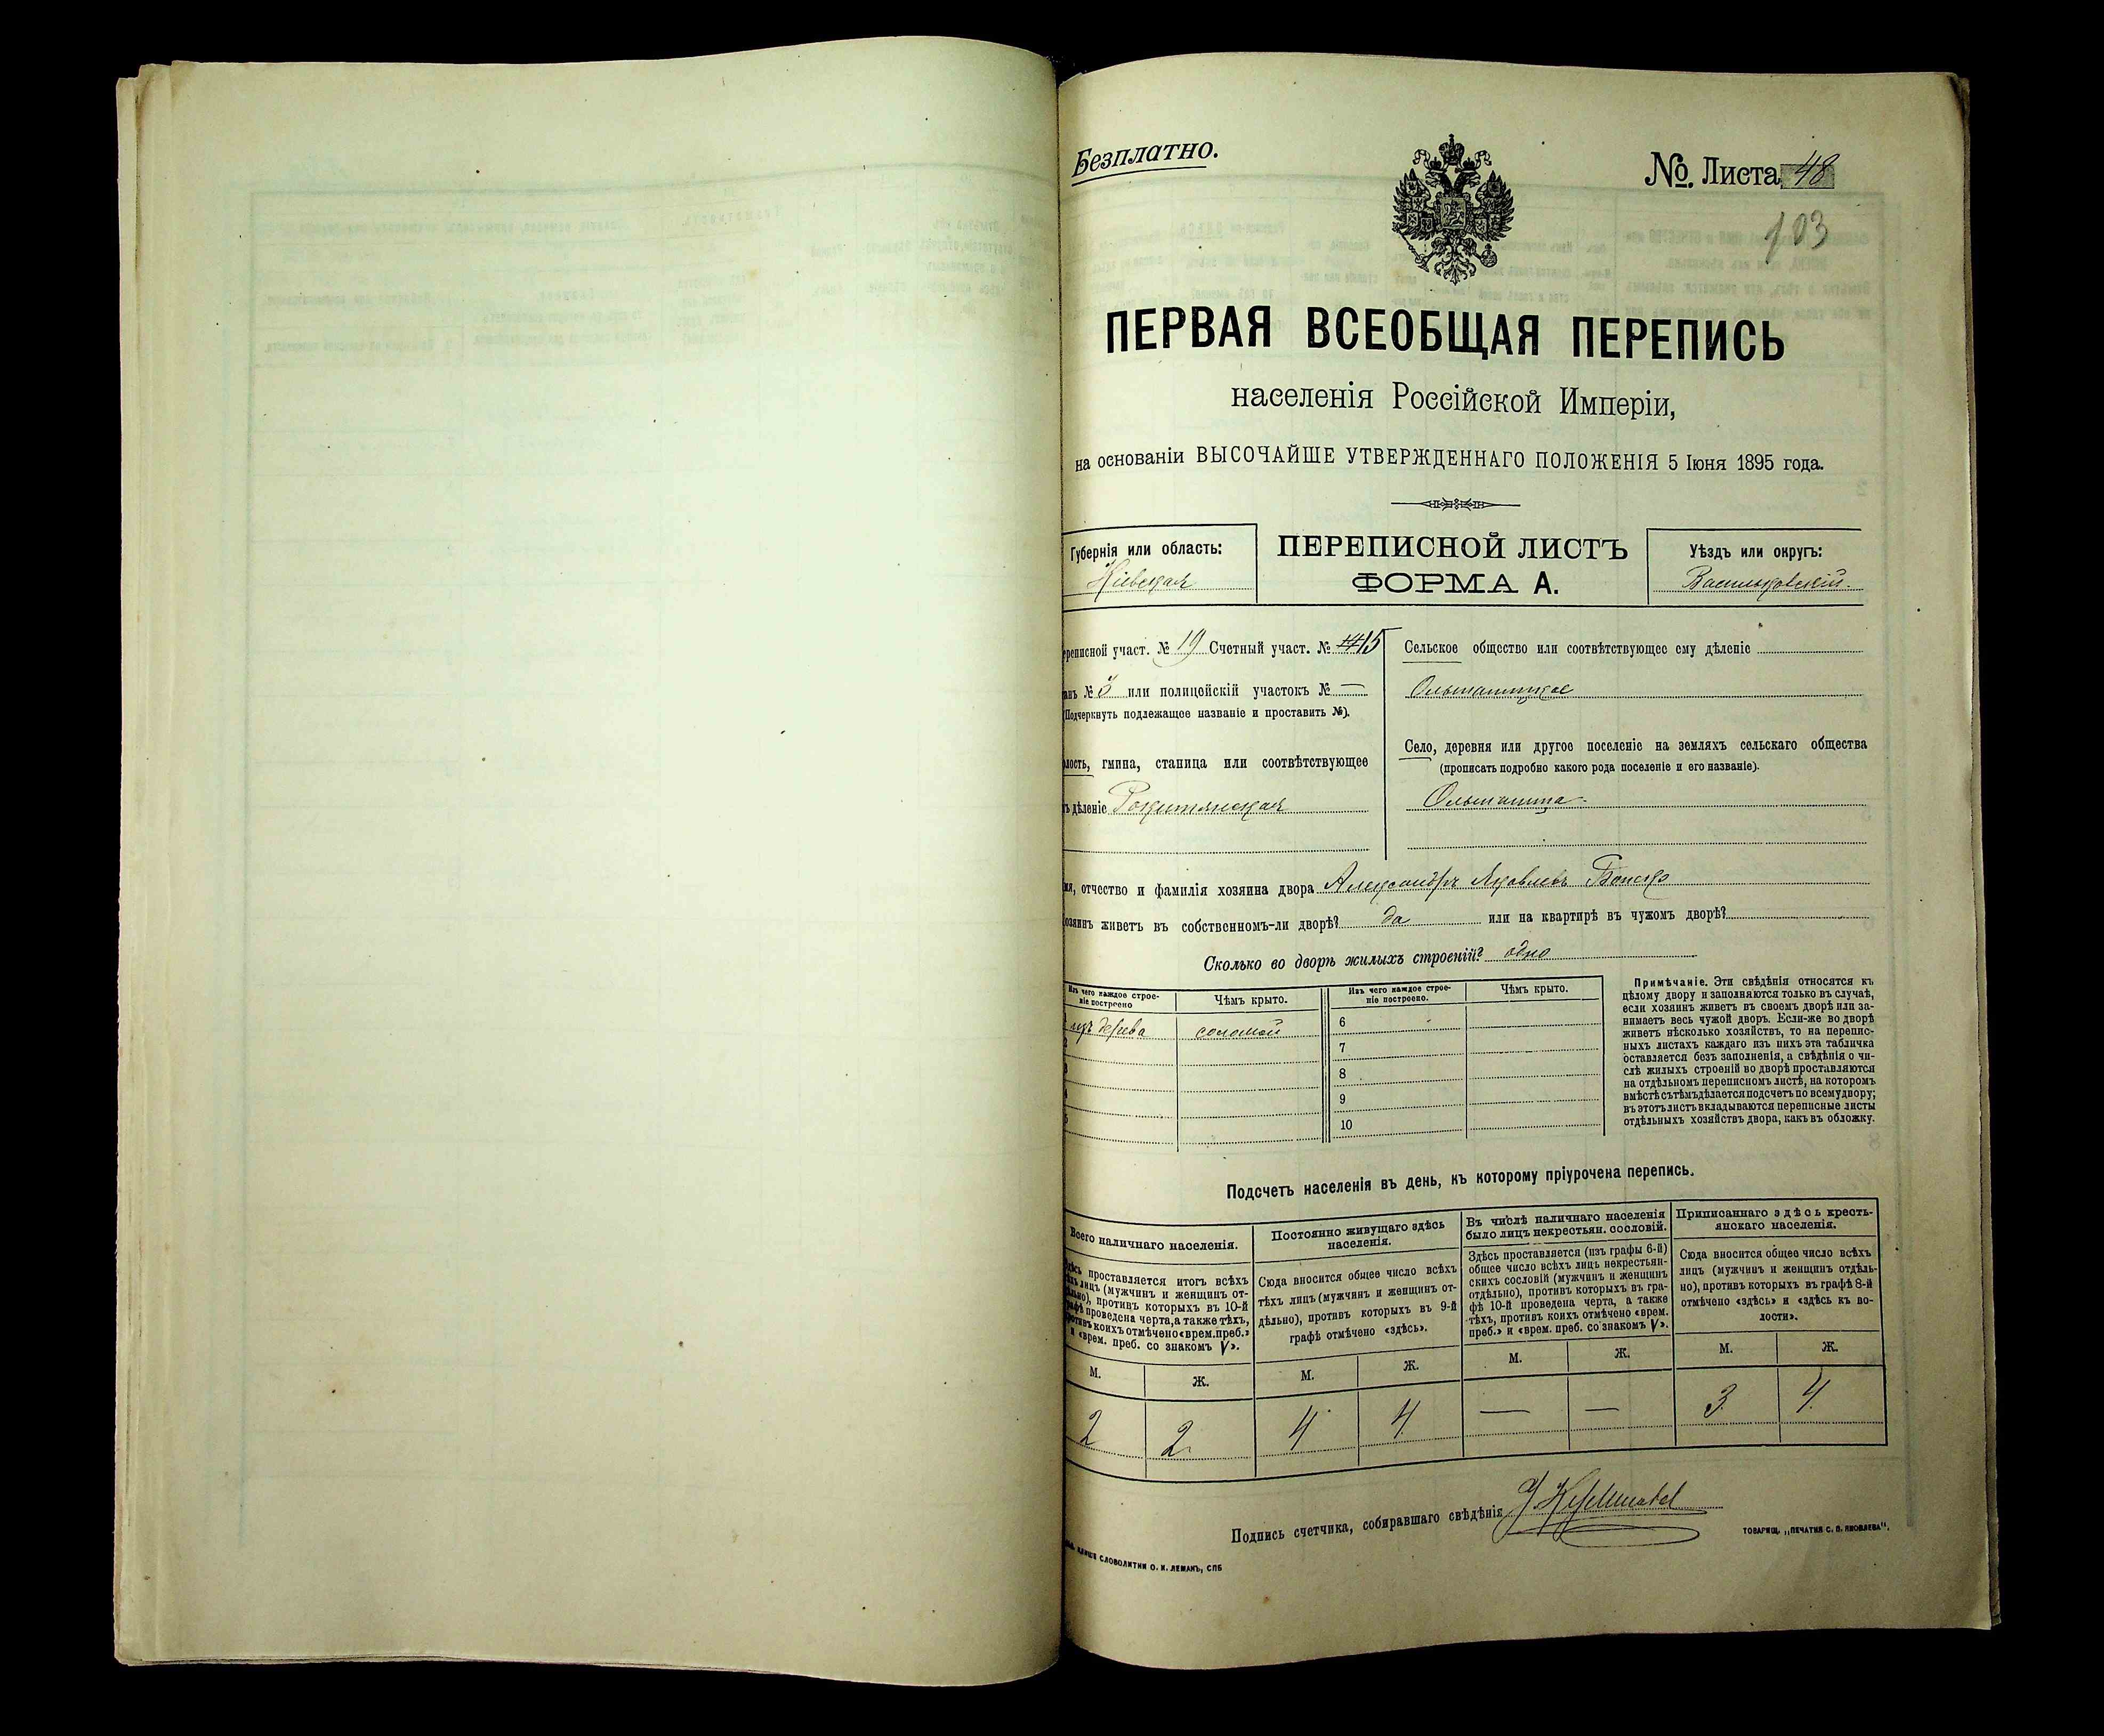 Безплатно.
№. Листа 48
103
ПЕРВАЯ ВСЕОБЩАЯ ПЕРЕПИСЬ
населенія Россійской Имперіи,
на основаніи ВЫСОЧАЙШЕ УТВЕРЖДЕННАГО ПОЛОЖЕНІЯ 5 Іюня 1895 года.
Губернія или область:
Кіевская
ПЕРЕПИСНОЙ ЛИСТЪ
ФОРМА А.
Уѣздъ или округъ:
Васильковскій.
реписной участ. № 19 Счетный участ. № 15
анъ № 3 или полицейскій участокъ № —
(Подчеркнуть подлежащее названіе и проставить №).
лость, гмина, станица или соотвѣтствующее
ъ дѣленіе Рокитянская
Сельское общество или соотвѣтствующее ему дѣленіе
Ольшаницкое
Село, деревня или другое поселеніе на земляхъ сельскаго общества
(прописать подробно какого рода поселеніе и его названіе).
Ольшаница.
мя, отчество и фамилія хозяина двора Александръ Яковлевъ
озяинъ живетъ въ собственномъ-ли дворѣ? да или на квартирѣ въ чужомъ дворѣ?
Сколько во дворѣ жилыхъ строеній? одно
Изъ чего каждое строе-
ніе построено
Чѣмъ крыто.
Изъ чего каждое строе-
ніе построено.
Чѣмъ крыто.
изъ дерева соломой
6
2
7
3
8
4
9
5
10
Примѣчаніе. Эти свѣдѣнія относятся къ
цѣлому двору и заполняются только въ случаѣ,
если хозяинъ живетъ въ своемъ дворѣ или за-
нимаетъ весь чужой дворъ. Если-же во дворѣ
живетъ нѣсколько хозяйствъ, то на перепис-
ныхъ листахъ каждаго изъ нихъ эта табличка
оставляется безъ заполненія, а свѣдѣнія о чи-
слѣ жилыхъ строеній во дворѣ проставляются
на отдѣльномъ переписномъ листѣ, на которомъ
вмѣстѣ съ тѣмъ дѣлается подсчетъ по всему двору;
въ этотъ листъ вкладываются переписные листы
отдѣльныхъ хозяйствъ двора, какъ въ обложку.
Подсчетъ населенія въ день, къ которому пріурочена перепись.
Всего наличнаго населенія.
Здѣсь проставляется итогъ всѣхъ
тѣхъ лицъ (мужчинъ и женщинъ от-
дѣльно), противъ которыхъ въ 10-й
графѣ проведена черта, а также тѣхъ,
противъ коихъ отмѣчено «врем. преб.»
и «врем. преб. со знакомъ V».
М. Ж.
2 2
Постоянно живущаго здѣсь
населенія.
Сюда вносится общее число всѣхъ
тѣхъ лицъ (мужчинъ и женщинъ от-
дѣльно), противъ которыхъ въ 9-й
графѣ отмѣчено «здѣсь».
М. Ж.
4 4
Въ числѣ наличнаго населенія
было лицъ некрестьян. сословій.
Здѣсь проставляется (изъ графы 6-й)
общее число всѣхъ лицъ некрестьян-
скихъ сословій (мужчинъ и женщинъ
отдѣльно), противъ которыхъ въ гра-
фѣ 10-й проведена черта, а также
тѣхъ, противъ коихъ отмѣчено «врем.
преб.» и «врем. преб. со знакомъ V».
М. Ж.
— —
Приписаннаго здѣсь кресть-
янскаго населенія.
Сюда вносится общее число всѣхъ
лицъ (мужчинъ и женщинъ отдѣль-
но), противъ которыхъ въ графѣ 8-й
отмѣчено «здѣсь» и «здѣсь къ во-
лости».
М. Ж.
3 4
Подпись счетчика, собиравшаго свѣдѣнія
СЛОВОЛИТНИ О. И. ЛЕМАНЪ, СПБ
ТОВАРИЩ. „ПЕЧАТНЯ С. П. ЯКОВЛЕВА“.